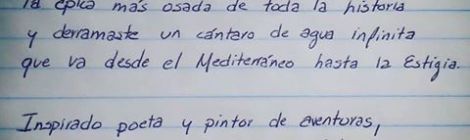 la épica más osada de toda la historia
y derramaste un cántaro de agua infinita
que va desde el Mediterráneo hasta la Estigia.
Inspirado poeta y pintor de aventuras,